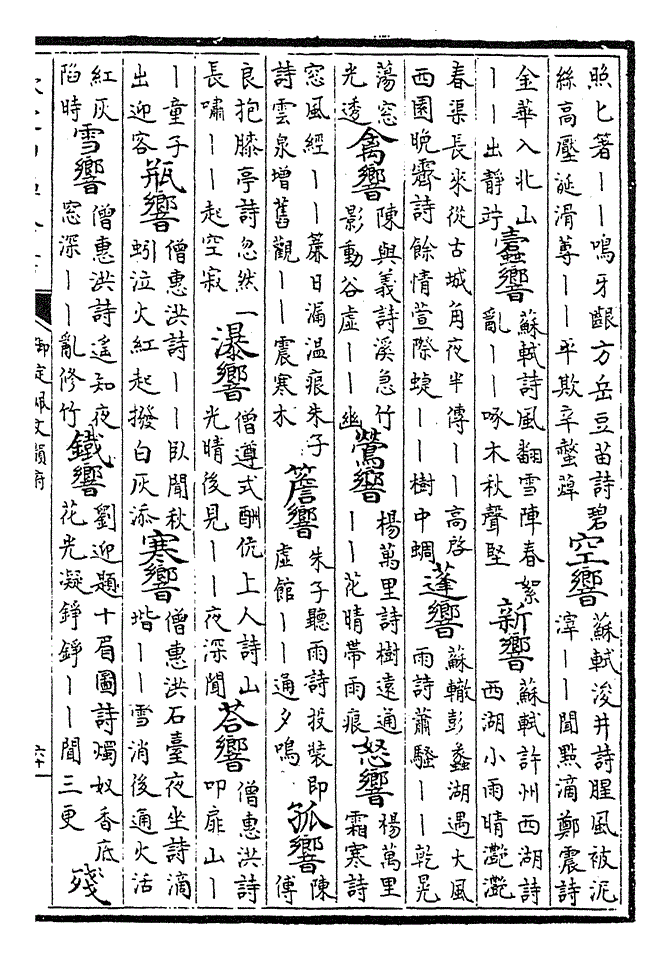 照匕箸——鳴牙齦方岳豆苗詩碧
絲高壓涎滑蓴——平欺辛螫
空響
蘇軾浚井詩腥風被泥
滓——聞點滴鄭震詩
金華入北山
——出靜竚
蠹響
蘇軾詩風翻雪陣春絮
亂——啄木秋聲堅
新響
蘇軾許州西湖詩
西湖小雨晴灔灔
春渠長來從古城角夜半傳——高啓
西園晚霽詩餘情萱際蜨——樹中蜩
蓬響
蘇轍彭蠡湖遇大風
雨詩蕭騷——乾晃
蕩窓
光透
禽響
陳與義詩溪急竹
影動谷虛——幽
鶯響
楊萬里詩樹遠通
——花晴帶雨痕
怒響
楊萬里
霜寒詩
窓風經——簾日漏溫痕朱子
詩雲泉增舊觀——震寒木
簷響
朱子聽雨詩投裝即
虛館——通夕鳴
孤響
陳
傅
良抱膝亭詩忽然一
長嘯——起空寂
瀑響
僧遵式酬伉上人詩山
光晴後見——夜深聞
荅響
僧惠洪詩
叩扉山—
—童子
出迎客
瓶響
僧惠洪詩——臥聞秋
蚓泣火紅起撥白灰添
寒響
僧惠洪石臺夜坐詩滴
堦——雪消後通火活
紅灰
陷時
雪響
僧惠洪詩遙知夜
窓深——亂修竹
鐵響
劉迎題十眉圖詩燭奴香底
花光凝錚錚——聞三更
殘
御定佩文韻府